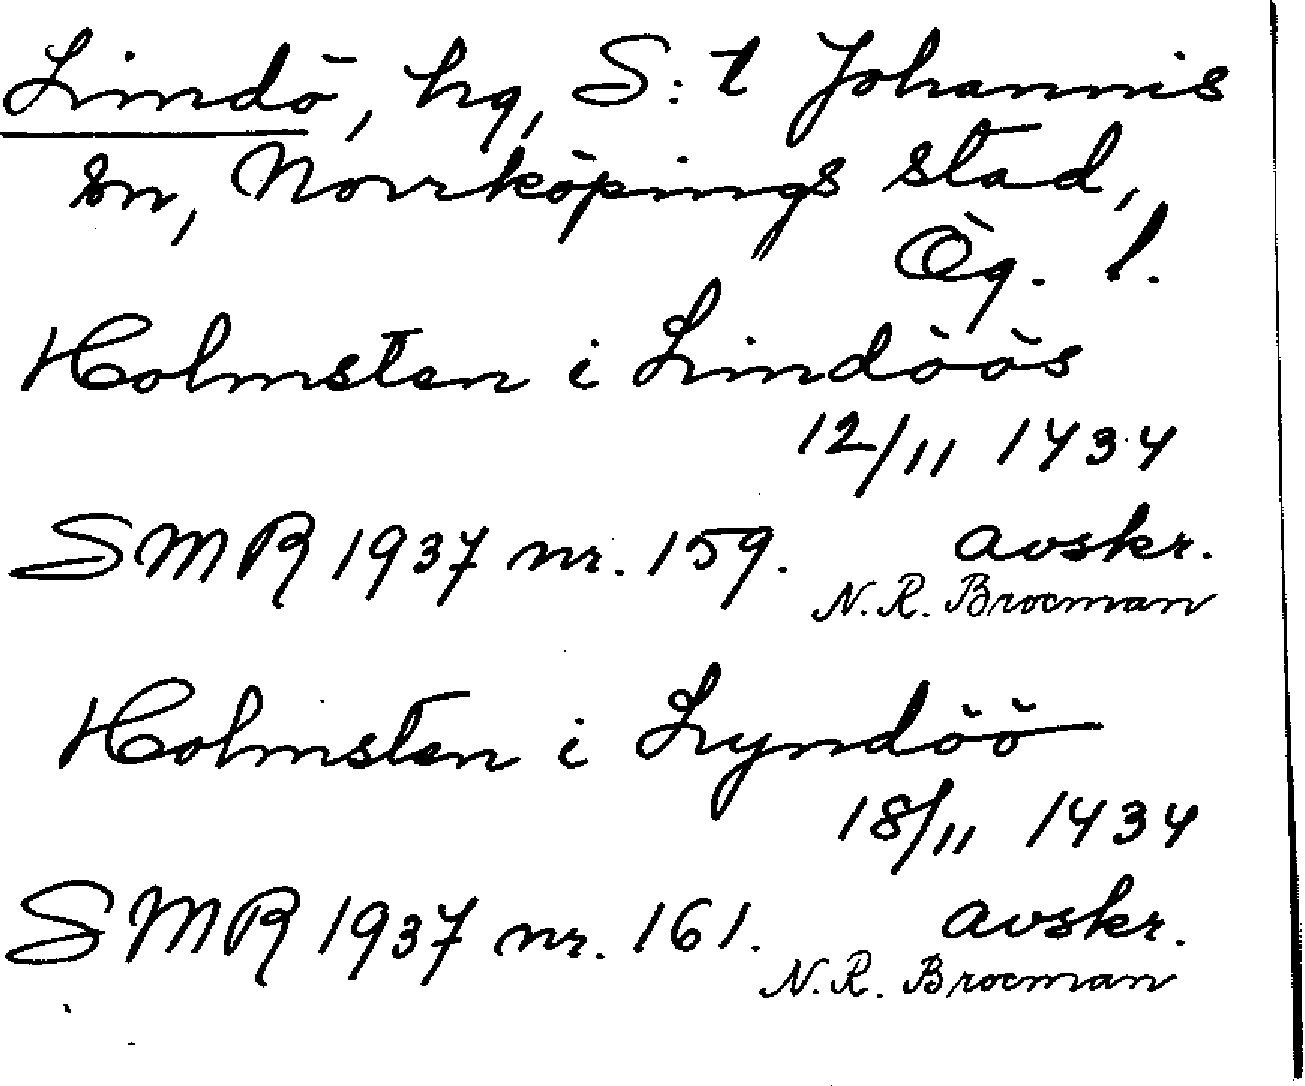 Lindö, hg, S:t Johannis
sn, Norrköpings stad,
Ög. l.
Holmsten i Lindöös
12/11 1434
SMR 1937 nr. 159. avskr.
N. R. Brocman
Holmsten i Lyndöö
18/11 1434
SMR 1937 nr. 161. avskr.
N. R. Brocman